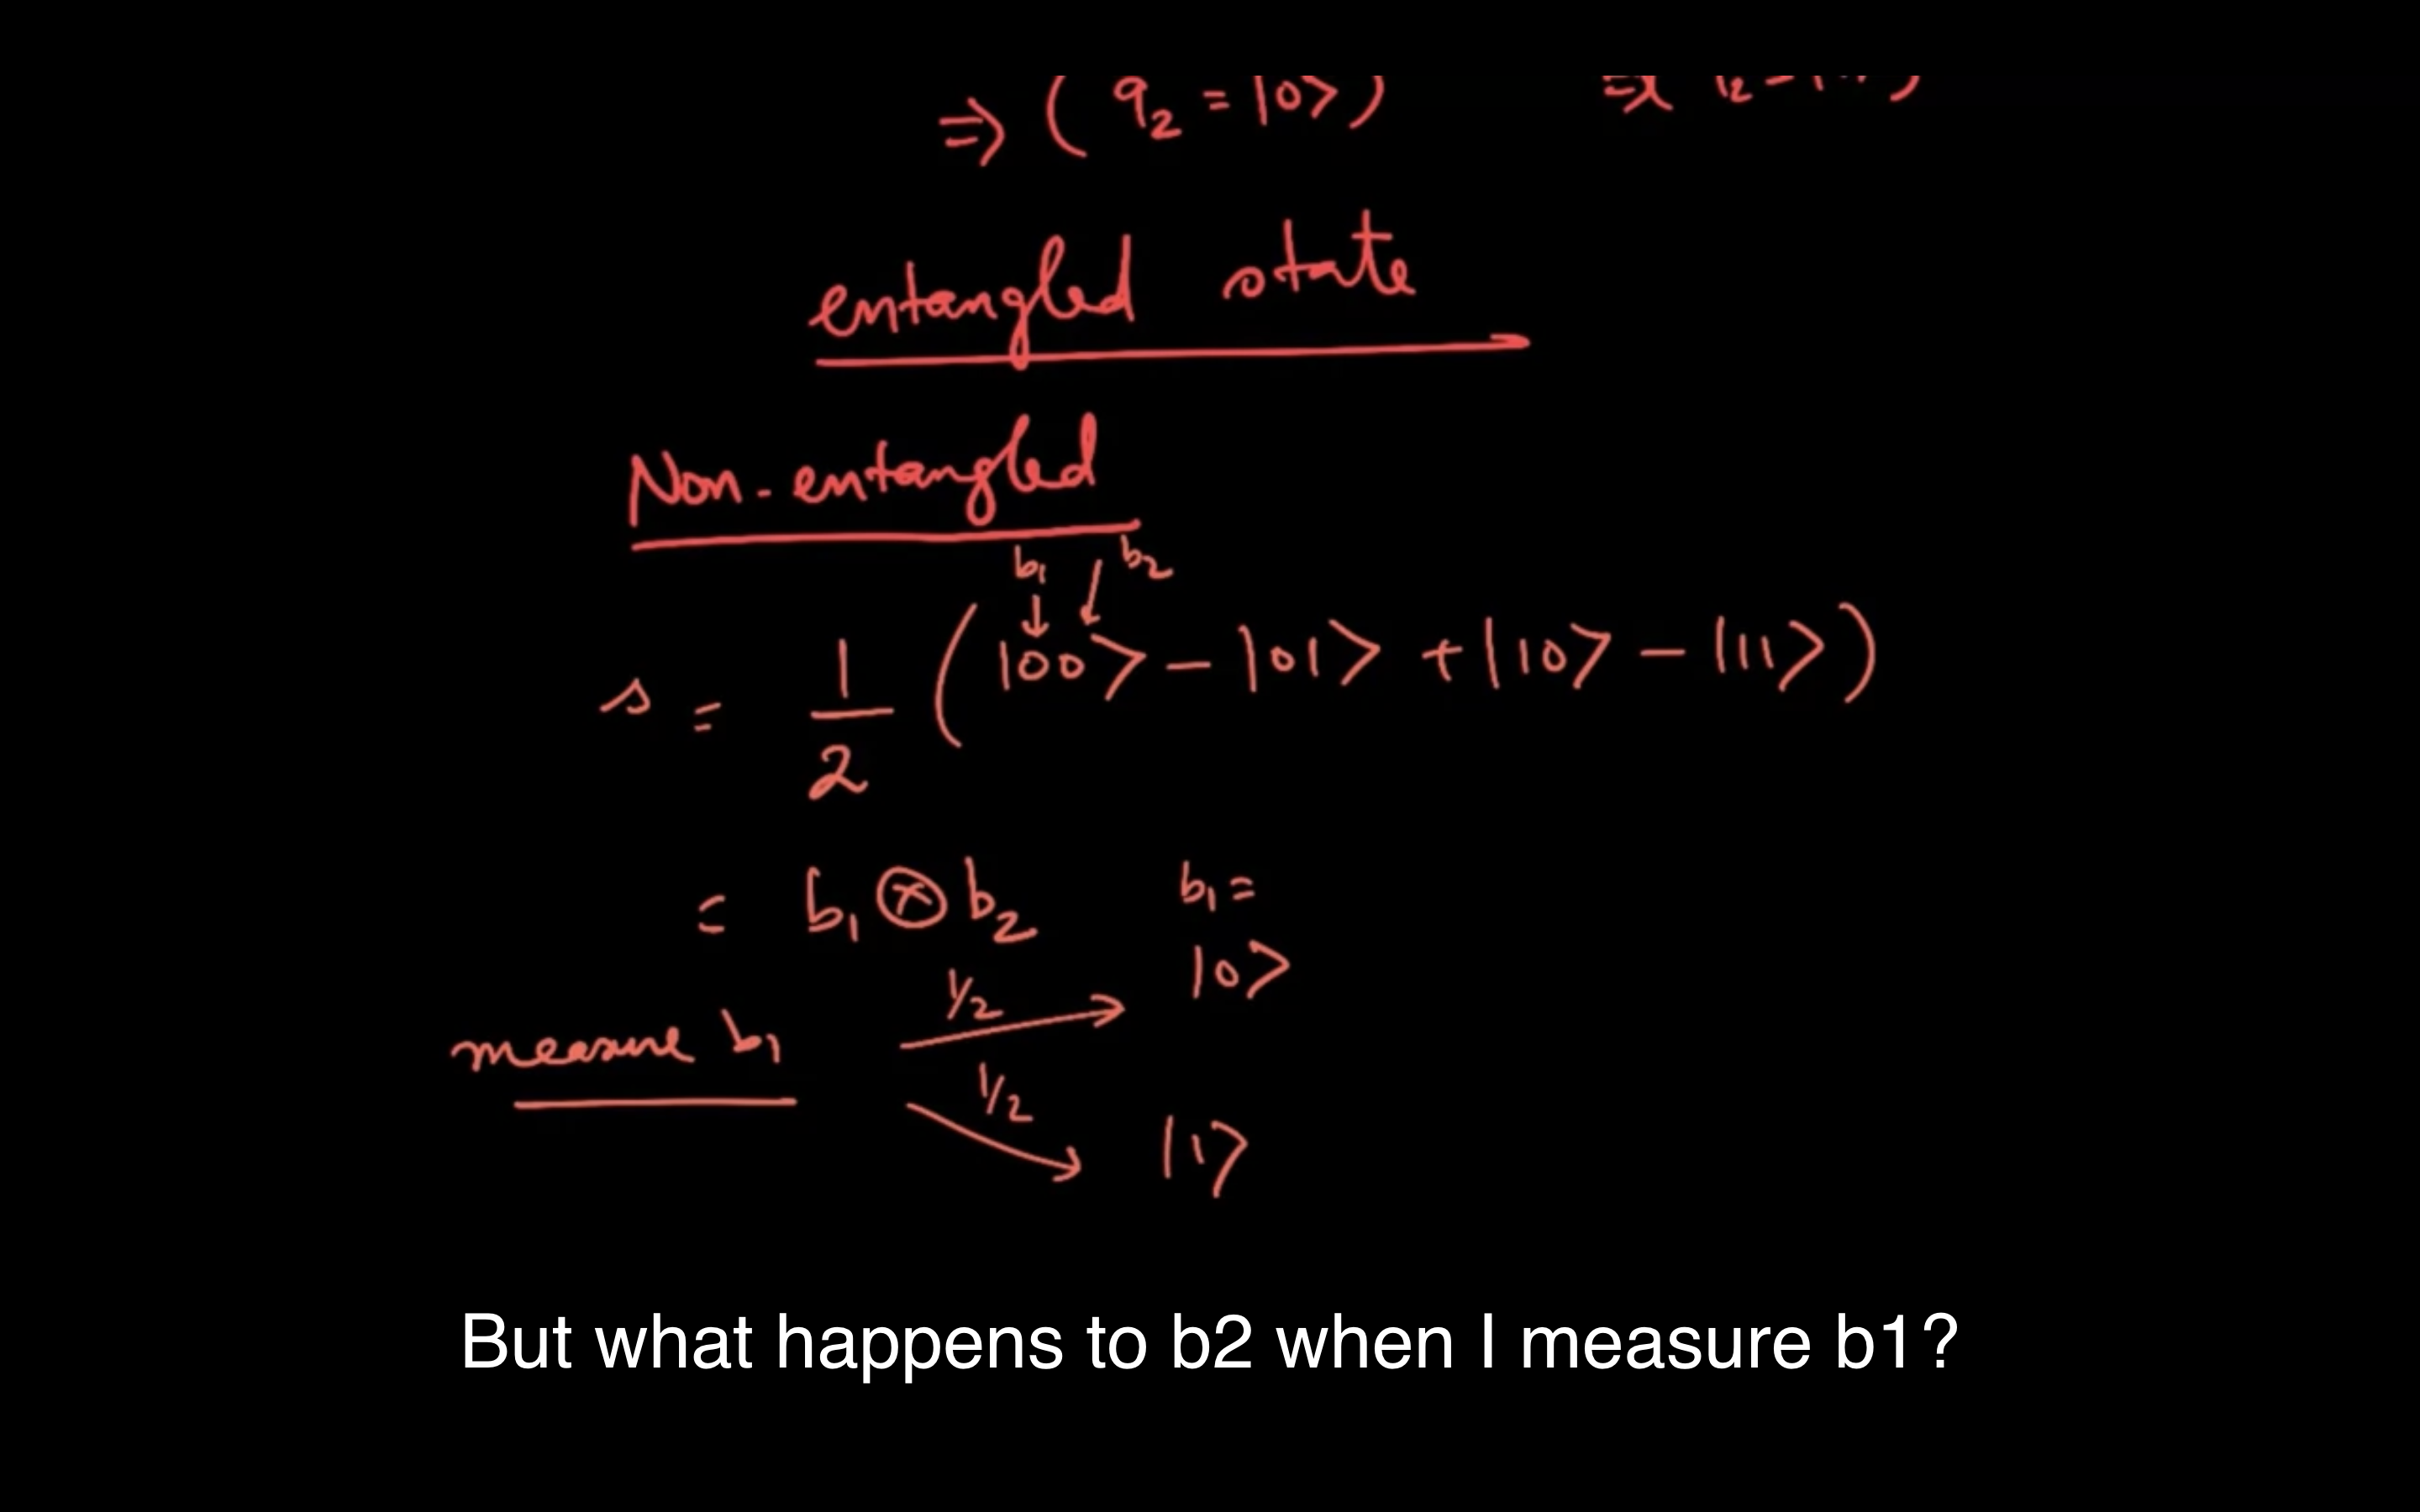 ⇒ ( q₂ = |0⟩ )
entangled state
Non-entangled
b₁ b₂
s = 1/2 ( |00⟩ − |01⟩ + |10⟩ − |11⟩ )
= b₁ ⊗ b₂ b₁ =
1/2 |0⟩
measure b₁
1/2 |1⟩
But what happens to b2 when I measure b1?